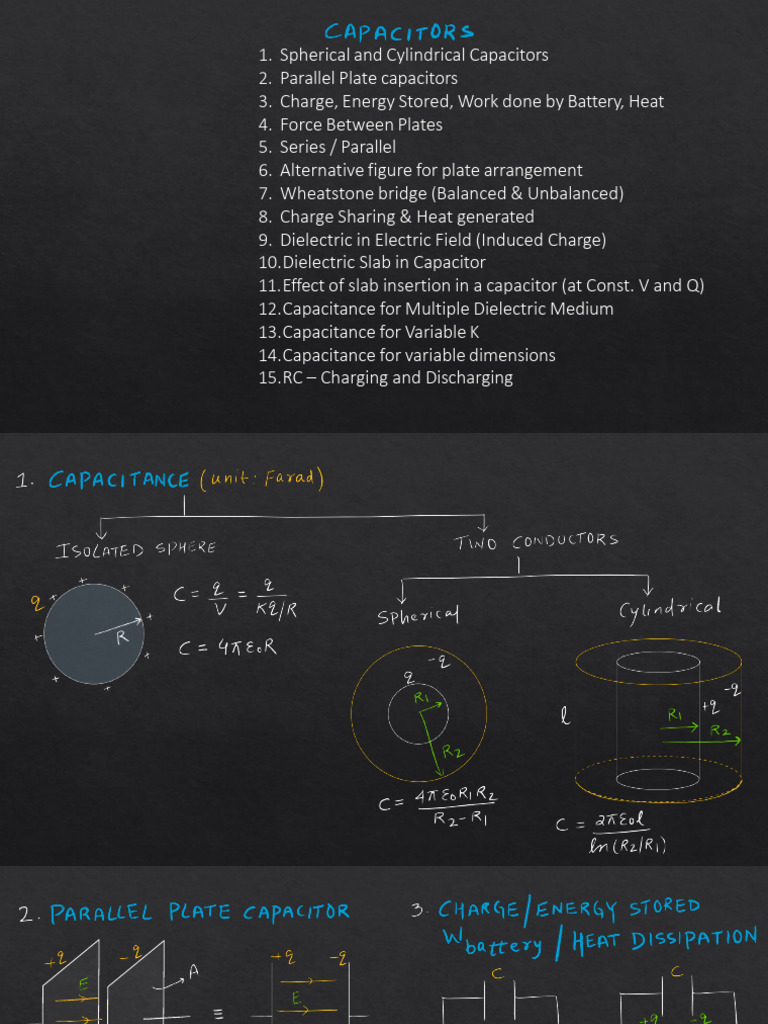 CAPACITORS
1. Spherical and Cylindrical Capacitors
2. Parallel Plate capacitors
3. Charge, Energy Stored, Work done by Battery, Heat
4. Force Between Plates
5. Series / Parallel
6. Alternative figure for plate arrangement
7. Wheatstone bridge (Balanced & Unbalanced)
8. Charge Sharing & Heat generated
9. Dielectric in Electric Field (Induced Charge)
10.Dielectric Slab in Capacitor
11.Effect of slab insertion in a capacitor (at Const. V and Q)
12.Capacitance for Multiple Dielectric Medium
13.Capacitance for Variable K
14.Capacitance for variable dimensions
15.RC – Charging and Discharging
1. CAPACITANCE (unit: Farad)
ISOLATED SPHERE
TWO CONDUCTORS
q
R
C = q/V = q/(Kq/R)
C = 4πε0R
Spherical
Cylindrical
q -q
R1
R2
C = 4πε0R1R2/(R2-R1)
l
+q -q
R1
R2
C = 2πε0l/ln(R2/R1)
2. PARALLEL PLATE CAPACITOR
+q -q
E
A
≡
+q -q
E
3. CHARGE/ENERGY STORED
Wbattery/HEAT DISSIPATION
C
C
+q -q